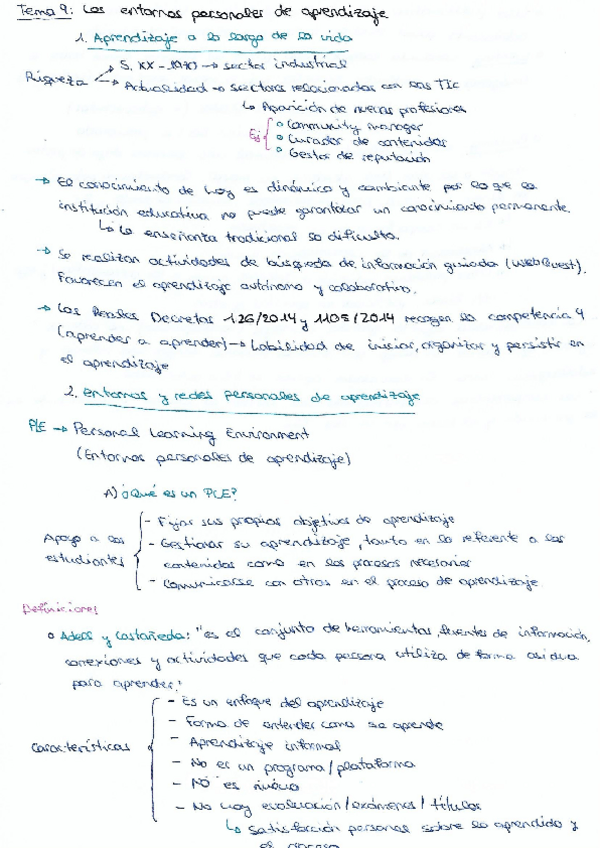 Tema 9: Los entornos personales de aprendizaje
1. Aprendizaje a lo largo de la vida
Riqueza → S. XX - → sector industrial
→ Actualidad → sectores relacionados con las TIC
↳ Aparición de nuevas profesiones
Ej { ∘ Community manager
∘ Curador de contenidos
∘ Gestor de reputación
→ El conocimiento de hoy es dinámico y cambiante por lo que la
institución educativa no puede garantizar un conocimiento permanente.
↳ La enseñanza tradicional lo dificulta.
→ Se realizan actividades de búsqueda de información guiada (WebQuest).
Favorecen el aprendizaje autónomo y colaborativo.
→ Los Reales Decretos 126/2014 y 1105/2014 recogen la competencia 4
(aprender a aprender) → habilidad de iniciar, organizar y persistir en
el aprendizaje
2. Entornos y redes personales de aprendizaje
PLE → Personal Learning Environment
(Entornos personales de aprendizaje)
A) ¿Qué es un PLE?
Apoyo a los estudiantes { - Fijar sus propios objetivos de aprendizaje
- Gestionar su aprendizaje, tanto en lo referente a los
contenidos como en los procesos necesarios
- Comunicarse con otros en el proceso de aprendizaje
Definiciones
∘ Adell y Castañeda: "es el conjunto de herramientas, fuentes de información,
conexiones y actividades que cada persona utiliza de forma asidua
para aprender."
Características { - Es un enfoque del aprendizaje
- Forma de entender como se aprende
- Aprendizaje informal
- No es un programa/plataforma
- No es nuevo
- No hay evaluación/exámenes/títulos
↳ Satisfacción personal sobre lo aprendido y
el proceso